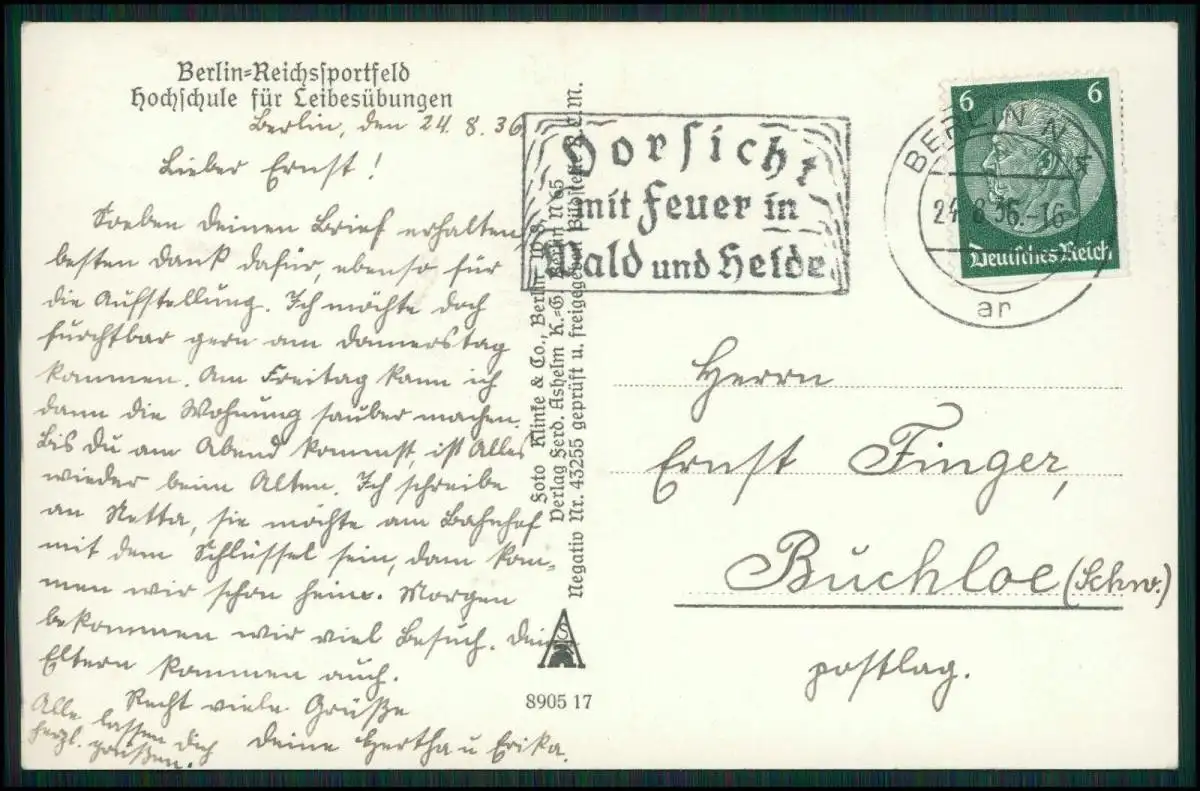 Berlin-Reichssportfeld
Hochschule für Leibesübungen
Berlin, den 24. 8. 36
Lieber Ernst!
Soeben deinen Brief erhalten,
besten Dank dafür, ebenso für
die Aufstellung. Ich möchte doch
furchtbar gern am Donnerstag
kommen. Am Freitag kann ich
dann die Wohnung sauber machen.
Bis du am Abend kommst, ist Alles
wieder beim Alten. Ich schreibe
an Netta, sie möchte am Bahnhof
mit dem Schlüssel sein, dann kom-
men wir schon heim. Morgen
bekommen wir viel Besuch. Deine
Eltern kommen auch.
Recht viele Grüße
Deine Hertha u Erika.
Alle lassen dich
herzl. grüßen.
Foto Klinke & Co., Berlin W 8
Verlag Ferd. Ashelm K.-G. Berlin N 65
Negativ Nr. 43255 geprüft u. freigegeben Bildstelle R.L.M.
8905 17
Vorsicht
mit Feuer in
Wald und Heide
BERLIN N 4
24.8.36.-16
ar
6 6
Deutsches Reich
Herrn
Ernst Finger,
Buchloe (Schw.)
postlag.